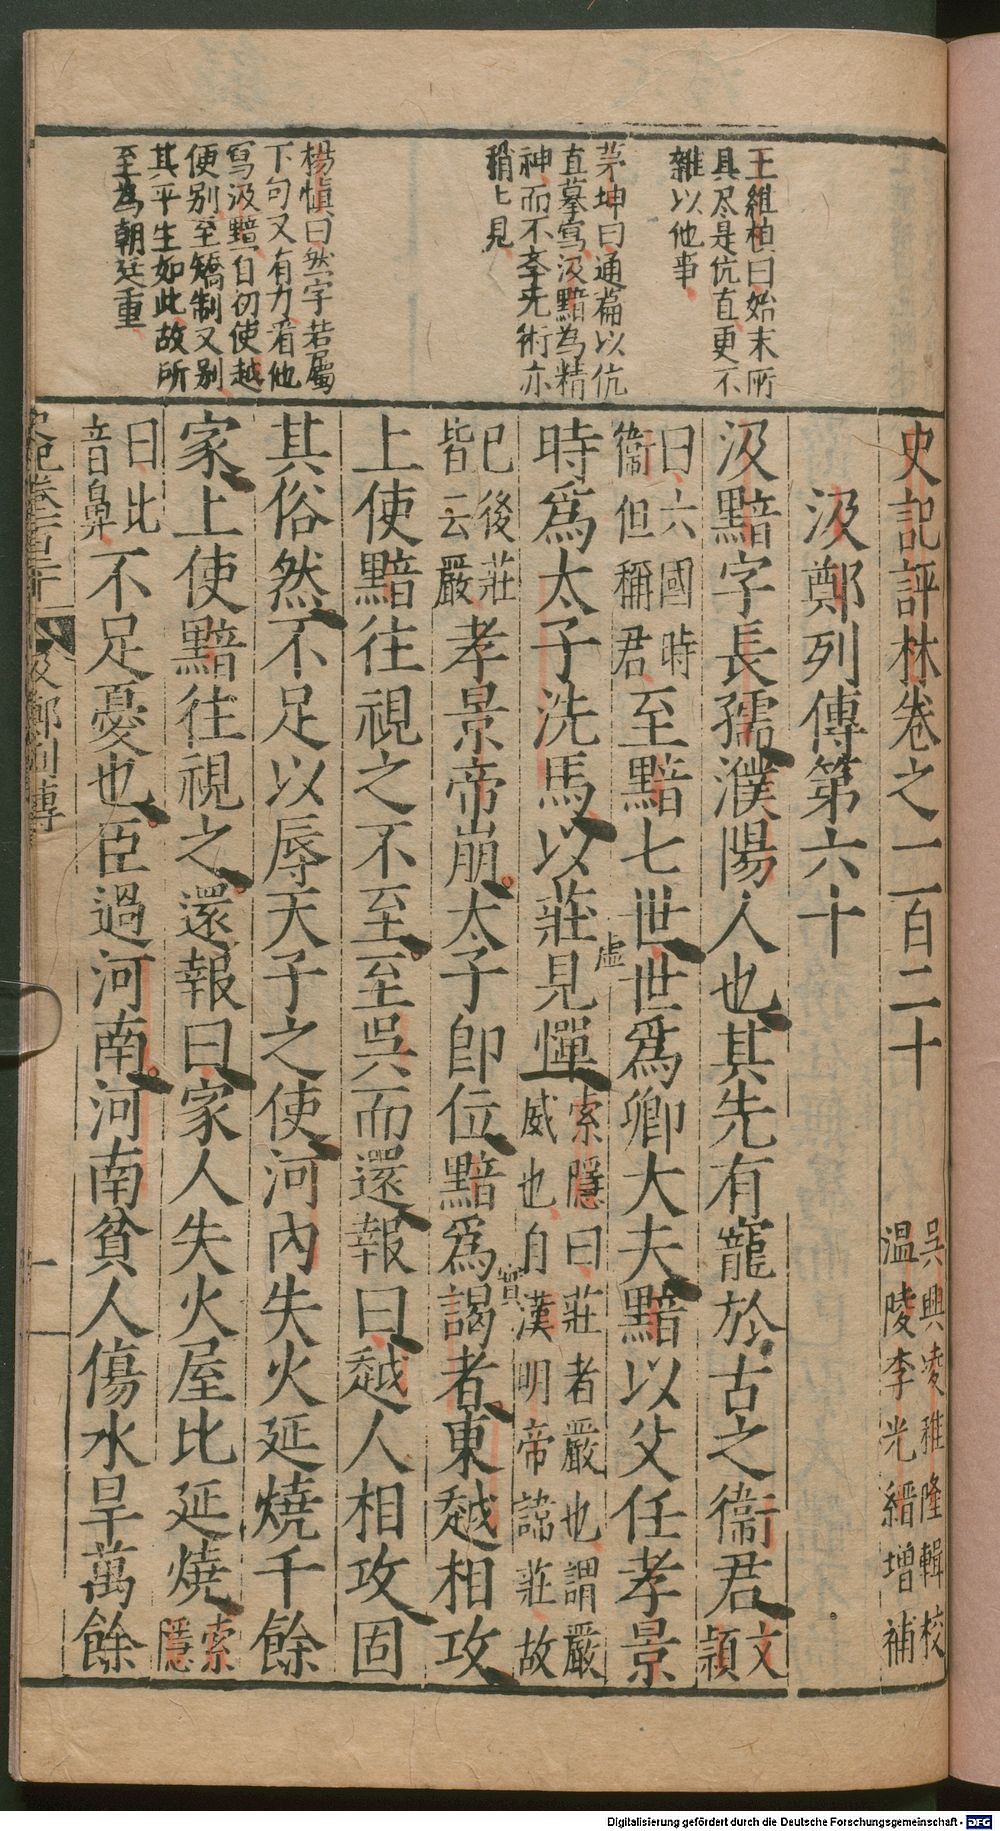 王維楨曰始末所
具尽是伉直更不
雜以他事
茅坤曰通篇以伉
直摹寫汲黯為精
神而不李先術亦
稍〻見
楊慎曰然字若屬
下句又有力看他
寫汲黯自初使越
便别至矯制又别
其平生如此故所
至為朝廷重
史記評林卷之一百二十
吳興凌稚隆輯校
溫陵李光縉增補
汲鄭列傳第六十
汲黯字長孺濮陽人也其先有寵於古之衞君文
穎
曰六國時
衞但稱君至黯七世世爲卿大夫黯以父任孝景
時爲太子洗馬以莊見憚索隱曰莊者嚴也謂嚴
威也自漢明帝諱莊故
已後莊
皆云嚴孝景帝崩太子卽位黯爲謁者東越相攻
上使黯往視之不至至吳而還報曰越人相攻固
其俗然不足以辱天子之使河內失火延燒千餘
家上使黯往視之還報曰家人失火屋比延燒索
隱
曰比
音鼻不足憂也臣過河南河南貧人傷水旱萬餘
史記卷一百二十
汲鄭列傳
一
虛
實
Digitalisierung gefördert durch die Deutsche Forschungsgemeinschaft - DFG